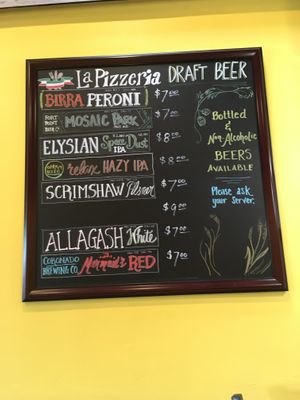 La Pizzeria DRAFT BEER
BIRRA PERONI $7.00
FORT POINT BEER CO MOSAIC PARK $7.00
ELYSIAN Space Dust IPA $8.00
relax HAZY IPA $8.00
SCRIMSHAW Pilsner $7.00
$9.00
ALLAGASH White $7.00
CORONADO BREWING CO. Mermaid's RED $7.00
Bottled
&
Non-Alcoholic
BEERS
AVAILABLE
Please ask
your Server.